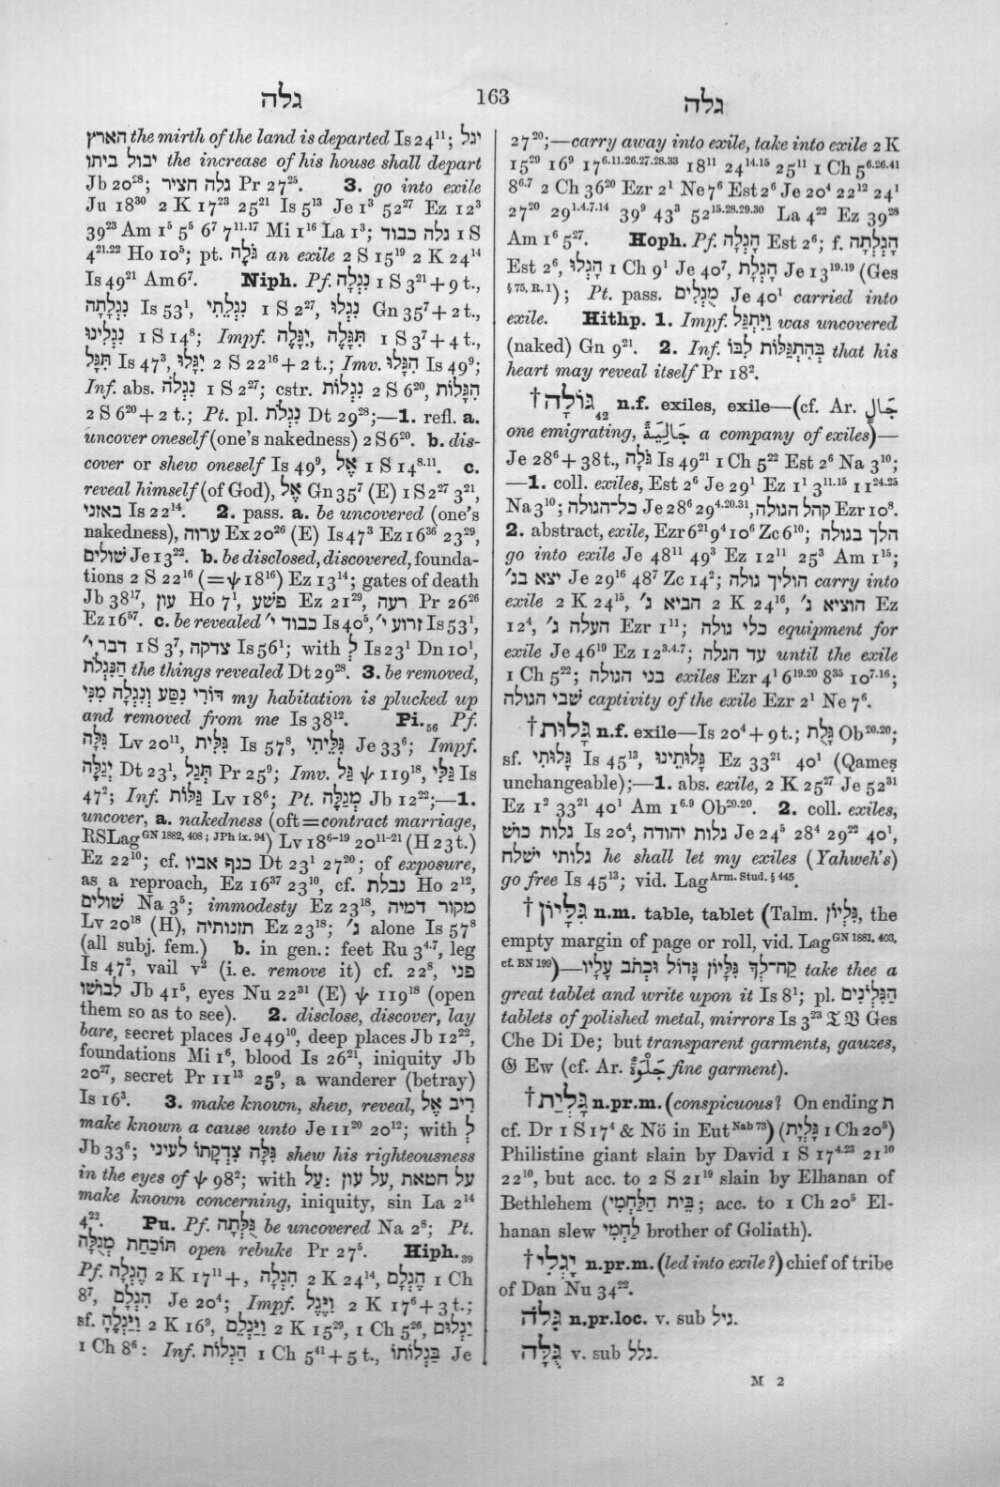 גלה 163 גלה
הארץ the mirth of the land is departed Is 24¹¹; יגל
יבול ביתו the increase of his house shall depart
Jb 20²⁸; גלה חציר Pr 27²⁵. 3. go into exile
Ju 18³⁰ 2 K 17²³ 25²¹ Is 5¹³ Je 1³ 52²⁷ Ez 12³
39²³ Am 1⁵ 5⁵ 6⁷ 7¹¹·¹⁷ Mi 1¹⁶ La 1³; גלה כבוד 1 S
4²¹·²² Ho 10⁵; pt. גֹּלֶה an exile 2 S 15¹⁹ 2 K 24¹⁴
Is 49²¹ Am 6⁷. Niph. Pf. נִגְלָה 1 S 3²¹ + 9 t.,
נִגְלָתָה Is 53¹, נִגְלֵיתִי 1 S 2²⁷, נִגְלוּ Gn 35⁷ + 2 t.,
נִגְלִינוּ 1 S 14⁸; Impf. תִּגָּלֶה, יִגָּלֶה 1 S 3⁷ + 4 t.,
תִּגָּל Is 47³, יִגָּלוּ 2 S 22¹⁶ + 2 t.; Imv. הִגָּלוּ Is 49⁹;
Inf. abs. נִגְלֹה 1 S 2²⁷; cstr. נִגְלוֹת 2 S 6²⁰, הִגָּלוֹת
2 S 6²⁰ + 2 t.; Pt. pl. נִגְלֹת Dt 29²⁸;—1. refl. a.
uncover oneself (one's nakedness) 2 S 6²⁰. b. dis-
cover or shew oneself Is 49⁹, אֶל 1 S 14⁸·¹¹. c.
reveal himself (of God), אֶל Gn 35⁷ (E) 1 S 2²⁷ 3²¹,
באזני Is 22¹⁴. 2. pass. a. be uncovered (one's
nakedness), ערוה Ex 20²⁶ (E) Is 47³ Ez 16³⁶ 23²⁹,
שולים Je 13²². b. be disclosed, discovered, founda-
tions 2 S 22¹⁶ (=ψ 18¹⁶) Ez 13¹⁴; gates of death
Jb 38¹⁷, עון Ho 7¹, פשע Ez 21²⁹, רעה Pr 26²⁶
Ez 16⁵⁷. c. be revealed כבוד י׳ Is 40⁵, זרוע י׳ Is 53¹,
דבר י׳ 1 S 3⁷, צדקה Is 56¹; with לְ Is 23¹ Dn 10¹,
הַנִּגְלֹת the things revealed Dt 29²⁸. 3. be removed,
דּוֹרִי נִסַּע וְנִגְלָה מִנִּי my habitation is plucked up
and removed from me Is 38¹². Pi.₅₆ Pf.
גִּלָּה Lv 20¹¹, גִּלִּית Is 57⁸, גִּלֵּיתִי Je 33⁶; Impf.
יְגַלֶּה Dt 23¹, תְּגַל Pr 25⁹; Imv. גַּל ψ 119¹⁸, גַּלִּי Is
47²; Inf. גַּלּוֹת Lv 18⁶; Pt. מְגַלֶּה Jb 12²²;—1.
uncover, a. nakedness (oft = contract marriage,
RSLag GN 1882, 408; JPh ix. 94) Lv 18⁶⁻¹⁹ 20¹¹⁻²¹ (H 23 t.)
Ez 22¹⁰; cf. כנף אביו Dt 23¹ 27²⁰; of exposure,
as a reproach, Ez 16³⁷ 23¹⁰, cf. נבלת Ho 2¹²,
שולים Na 3⁵; immodesty Ez 23¹⁸, מקור דמיה
Lv 20¹⁸ (H), תזנותיה Ez 23¹⁸; ג׳ alone Is 57⁸
(all subj. fem.) b. in gen.: feet Ru 3⁴·⁷, leg
Is 47², vail v² (i. e. remove it) cf. 22⁸, פני
לבושו Jb 41⁵, eyes Nu 22³¹ (E) ψ 119¹⁸ (open
them so as to see). 2. disclose, discover, lay
bare, secret places Je 49¹⁰, deep places Jb 12²²,
foundations Mi 1⁶, blood Is 26²¹, iniquity Jb
20²⁷, secret Pr 11¹³ 25⁹, a wanderer (betray)
Is 16³. 3. make known, shew, reveal, ריב אֶל
make known a cause unto Je 11²⁰ 20¹²; with לְ
Jb 33⁶; גִּלָּה צִדְקָתוֹ לעיני shew his righteousness
in the eyes of ψ 98²; with עַל: על חטאת, על עון
make known concerning, iniquity, sin La 2¹⁴
4²². Pu. Pf. גֻּלְּתָה be uncovered Na 2⁸; Pt.
תּוֹכַחַת מְגֻלָּה open rebuke Pr 27⁵. Hiph.₃₉
Pf. הֶגְלָה 2 K 17¹¹ +, הִגְלָה 2 K 24¹⁴, הֶגְלָם 1 Ch
8⁷, הִגְלָם Je 20⁴; Impf. וַיֶּגֶל 2 K 17⁶ + 3 t.;
sf. וַיַּגְלֶהָ 2 K 16⁹, וַיַּגְלֵם 2 K 15²⁹, 1 Ch 5²⁶, יַגְלוּם
1 Ch 8⁶: Inf. הַגְלוֹת 1 Ch 5⁴¹ + 5 t., בַּגְלוֹתוֹ Je
27²⁰;—carry away into exile, take into exile 2 K
15²⁹ 16⁹ 17⁶·¹¹·²⁶·²⁷·²⁸·³³ 18¹¹ 24¹⁴·¹⁵ 25¹¹ 1 Ch 5⁶·²⁶·⁴¹
8⁶·⁷ 2 Ch 36²⁰ Ezr 2¹ Ne 7⁶ Est 2⁶ Je 20⁴ 22¹² 24¹
27²⁰ 29¹·⁴·⁷·¹⁴ 39⁹ 43³ 52¹⁵·²⁸·²⁹·³⁰ La 4²² Ez 39²⁸
Am 1⁶ 5²⁷. Hoph. Pf. הָגְלָה Est 2⁶; f. הָגְלְתָה
Est 2⁶, הָגְלוּ 1 Ch 9¹ Je 40⁷, הָגְלָת Je 13¹⁹·¹⁹ (Ges
§ 75, R. 1); Pt. pass. מֻגְלִים Je 40¹ carried into
exile. Hithp. 1. Impf. וַיִּתְגַּל was uncovered
(naked) Gn 9²¹. 2. Inf. בְּהִתְגַּלּוֹת לִבּוֹ that his
heart may reveal itself Pr 18².
† גּוֹלָה₄₂ n.f. exiles, exile—(cf. Ar. جَالٍ
one emigrating, جَالِيَةٌ a company of exiles)—
Je 28⁶ + 38 t., גֹּלָה Is 49²¹ 1 Ch 5²² Est 2⁶ Na 3¹⁰;
—1. coll. exiles, Est 2⁶ Je 29¹ Ez 1¹ 3¹¹·¹⁵ 11²⁴·²⁵
Na 3¹⁰; כל־הגולה Je 28⁶ 29⁴·²⁰·³¹, קהל הגולה Ezr 10⁸.
2. abstract, exile, Ezr 6²¹ 9⁴ 10⁶ Zc 6¹⁰; הלך בגולה
go into exile Je 48¹¹ 49³ Ez 12¹¹ 25³ Am 1¹⁵;
יצא בג׳ Je 29¹⁶ 48⁷ Zc 14²; הוליך גולה carry into
exile 2 K 24¹⁵, הביא ג׳ 2 K 24¹⁶, הוציא ג׳ Ez
12⁴, העלה ג׳ Ezr 1¹¹; כלי גולה equipment for
exile Je 46¹⁹ Ez 12³·⁴·⁷; עד הגלה until the exile
1 Ch 5²²; בני הגולה exiles Ezr 4¹ 6¹⁹·²⁰ 8³⁵ 10⁷·¹⁶;
שבי הגולה captivity of the exile Ezr 2¹ Ne 7⁶.
† גָּלוּת n.f. exile—Is 20⁴ + 9 t.; גָּלֻת Ob²⁰·²⁰;
sf. גָּלוּתִי Is 45¹³, גָּלוּתֵינוּ Ez 33²¹ 40¹ (Qameṣ
unchangeable);—1. abs. exile, 2 K 25²⁷ Je 52³¹
Ez 1² 33²¹ 40¹ Am 1⁶·⁹ Ob²⁰·²⁰. 2. coll. exiles,
גלות כוש Is 20⁴, גלות יהודה Je 24⁵ 28⁴ 29²² 40¹,
גלותי ישלח he shall let my exiles (Yahweh's)
go free Is 45¹³; vid. Lag Arm. Stud. § 445.
† גִּלָּיוֹן n.m. table, tablet (Talm. גִּלְיוֹן, the
empty margin of page or roll, vid. Lag GN 1881, 403,
cf. BN 199)—קַח־לְךָ גִּלָּיוֹן גָּדוֹל וּכְתֹב עָלָיו take thee a
great tablet and write upon it Is 8¹; pl. הַגִּלְיֹנִים
tablets of polished metal, mirrors Is 3²³ 𝔗 𝔙 Ges
Che Di De; but transparent garments, gauzes,
𝔊 Ew (cf. Ar. جَلْوَةٌ fine garment).
† גָּלְיַת n.pr.m. (conspicuous? On ending ת
cf. Dr 1 S 17⁴ & Nö in Eut Nab 73) (גָּלְיָת 1 Ch 20⁵)
Philistine giant slain by David 1 S 17⁴·²³ 21¹⁰
22¹⁰, but acc. to 2 S 21¹⁹ slain by Elhanan of
Bethlehem (בֵּית הַלַּחְמִי; acc. to 1 Ch 20⁵ El-
hanan slew לַחְמִי brother of Goliath).
† יָגְלִי n.pr.m. (led into exile?) chief of tribe
of Dan Nu 34²².
גִּלֹה n.pr.loc. v. sub גיל.
גֻּלָּה v. sub גלל.
M 2